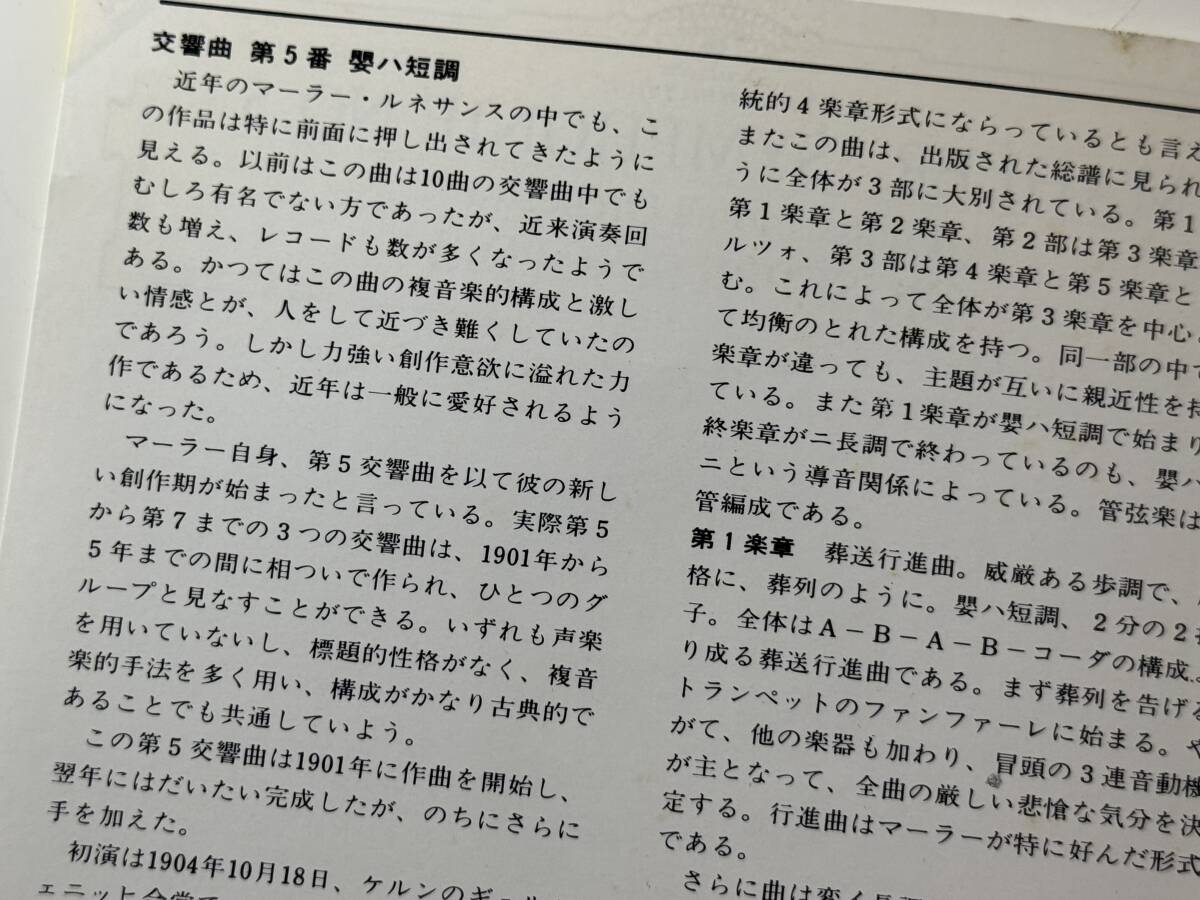 交響曲 第5番 嬰ハ短調
近年のマーラー・ルネサンスの中でも、こ
の作品は特に前面に押し出されてきたように
見える。以前はこの曲は10曲の交響曲中でも
むしろ有名でない方であったが、近来演奏回
数も増え、レコードも数が多くなったようで
ある。かつてはこの曲の複音楽的構成と激し
い情感とが、人をして近づき難くしていたの
であろう。しかし力強い創作意欲に溢れた力
作であるため、近年は一般に愛好されるよう
になった。
マーラー自身、第5交響曲を以て彼の新し
い創作期が始まったと言っている。実際第5
から第7までの3つの交響曲は、1901年から
5年までの間に相ついで作られ、ひとつのグ
ループと見なすことができる。いずれも声楽
を用いていないし、標題的性格がなく、複音
楽的手法を多く用い、構成がかなり古典的で
あることでも共通していよう。
この第5交響曲は1901年に作曲を開始し、
翌年にはだいたい完成したが、のちにさらに
手を加えた。
初演は1904年10月18日、ケルンのギュ
ェニッヒ会堂で
統的4楽章形式にならっているとも言え
またこの曲は、出版された総譜に見られ
うに全体が3部に大別されている。第1
第1楽章と第2楽章、第2部は第3楽章
ルツォ、第3部は第4楽章と第5楽章と
む。これによって全体が第3楽章を中心
て均衡のとれた構成を持つ。同一部の中で
楽章が違っても、主題が互いに親近性を持
ている。また第1楽章が嬰ハ短調で始まり
終楽章がニ長調で終わっているのも、嬰ハ
ニという導音関係によっている。管弦楽は
管編成である。
第1楽章 葬送行進曲。威厳ある歩調で、
格に、葬列のように。嬰ハ短調、2分の2拍
子。全体はA-B-A-B-コーダの構成
り成る葬送行進曲である。まず葬列を告げる
トランペットのファンファーレに始まる。や
がて、他の楽器も加わり、冒頭の3連音動機
が主となって、全曲の厳しい悲愴な気分を決
定する。行進曲はマーラーが特に好んだ形式
である。
さらに曲は変く長調